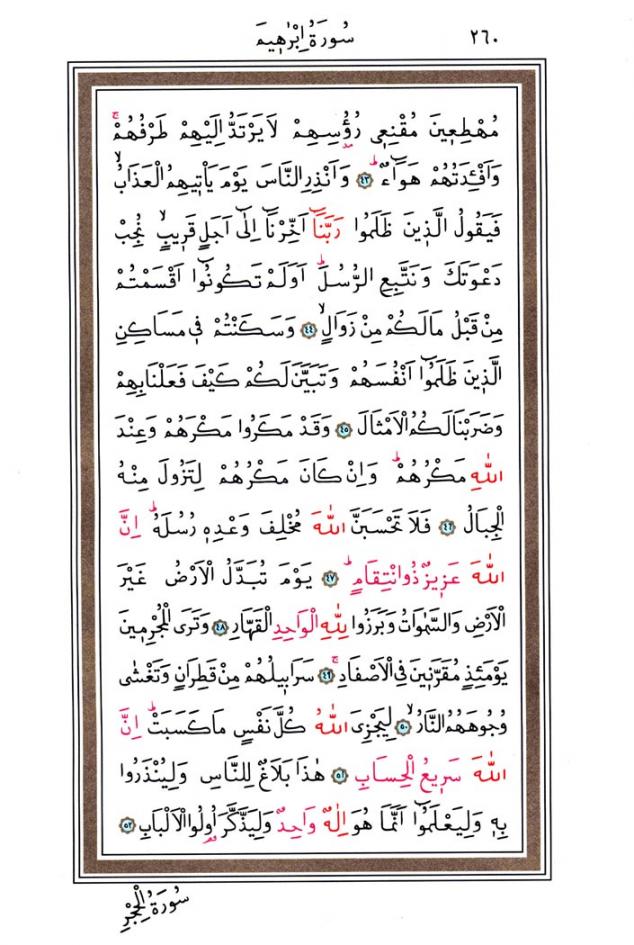 ٢٦٠
سُورَةُ اِبْرٰه۪يمَ
مُهْطِع۪ينَ مُقْنِع۪ي رُؤُ۫سِهِمْ لَا يَرْتَدُّ اِلَيْهِمْ طَرْفُهُمْۚ
وَاَفْـِٔدَتُهُمْ هَوَٓاءٌۜ ﴿٤٣﴾ وَاَنْذِرِ النَّاسَ يَوْمَ يَأْت۪يهِمُ الْعَذَابُۙ
فَيَقُولُ الَّذ۪ينَ ظَلَمُوا رَبَّنَٓا اَخِّرْنَٓا اِلٰٓى اَجَلٍ قَر۪يبٍۙ نُجِبْ
دَعْوَتَكَ وَنَتَّبِعِ الرُّسُلَۜ اَوَلَمْ تَكُونُٓوا اَقْسَمْتُمْ
مِنْ قَبْلُ مَالَكُمْ مِنْ زَوَالٍۙ ﴿٤٤﴾ وَسَكَنْتُمْ ف۪ي مَسَاكِنِ
الَّذ۪ينَ ظَلَمُٓوا اَنْفُسَهُمْ وَتَبَيَّنَ لَكُمْ كَيْفَ فَعَلْنَا بِهِمْ
وَضَرَبْنَا لَكُمُ الْاَمْثَالَ ﴿٤٥﴾ وَقَدْ مَكَرُوا مَكْرَهُمْ وَعِنْدَ
اللّٰهِ مَكْرُهُمْۜ وَاِنْ كَانَ مَكْرُهُمْ لِتَزُولَ مِنْهُ
الْجِبَالُ ﴿٤٦﴾ فَلَا تَحْسَبَنَّ اللّٰهَ مُخْلِفَ وَعْدِه۪ رُسُلَهُۜ اِنَّ
اللّٰهَ عَز۪يزٌ ذُو انْتِقَامٍۜ ﴿٤٧﴾ يَوْمَ تُبَدَّلُ الْاَرْضُ غَيْرَ
الْاَرْضِ وَالسَّمٰوَاتُ وَبَرَزُوا لِلّٰهِ الْوَاحِدِ الْقَهَّارِ ﴿٤٨﴾ وَتَرَى الْمُجْرِم۪ينَ
يَوْمَئِذٍ مُقَرَّن۪ينَ فِي الْاَصْفَادِۚ ﴿٤٩﴾ سَرَاب۪يلُهُمْ مِنْ قَطِرَانٍ وَتَغْشٰى
وُجُوهَهُمُ النَّارُۙ ﴿٥٠﴾ لِيَجْزِيَ اللّٰهُ كُلَّ نَفْسٍ مَا كَسَبَتْۜ اِنَّ
اللّٰهَ سَر۪يعُ الْحِسَابِ ﴿٥١﴾ هٰذَا بَلَاغٌ لِلنَّاسِ وَلِيُنْذَرُوا
بِه۪ وَلِيَعْلَمُٓوا اَنَّمَا هُوَ اِلٰهٌ وَاحِدٌ وَلِيَذَّكَّرَ اُو۬لُوا الْاَلْبَابِ ﴿٥٢﴾
سُورَةُ الْحِجْرِ